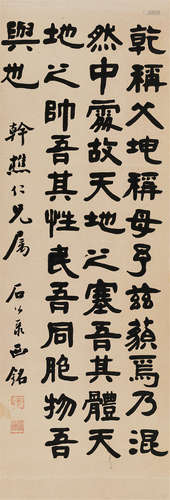 乾稱父坤稱母予茲藐焉乃混
然中處故天地之塞吾其體天
地之帥吾其性民吾同胞物吾
與也
幹樵仁兄屬
石公 西銘